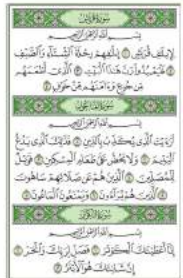 سورة قريش
بسم الله الرحمن الرحيم
لإيلاف قريش ۝ إيلافهم رحلة الشتاء والصيف
۝ فليعبدوا رب هذا البيت ۝ الذي أطعمهم
من جوع وءامنهم من خوف ۝
سورة الماعون
بسم الله الرحمن الرحيم
أرءيت الذي يكذب بالدين ۝ فذلك الذي يدع
اليتيم ۝ ولا يحض على طعام المسكين ۝ فويل
للمصلين ۝ الذين هم عن صلاتهم ساهون
۝ الذين هم يراءون ۝ ويمنعون الماعون ۝
سورة الكوثر
بسم الله الرحمن الرحيم
إنا أعطيناك الكوثر ۝ فصل لربك وانحر ۝
إن شانئك هو الأبتر ۝